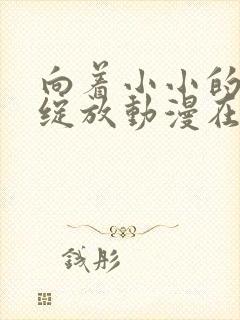 向着小小的
绽放動漫在
钱彤